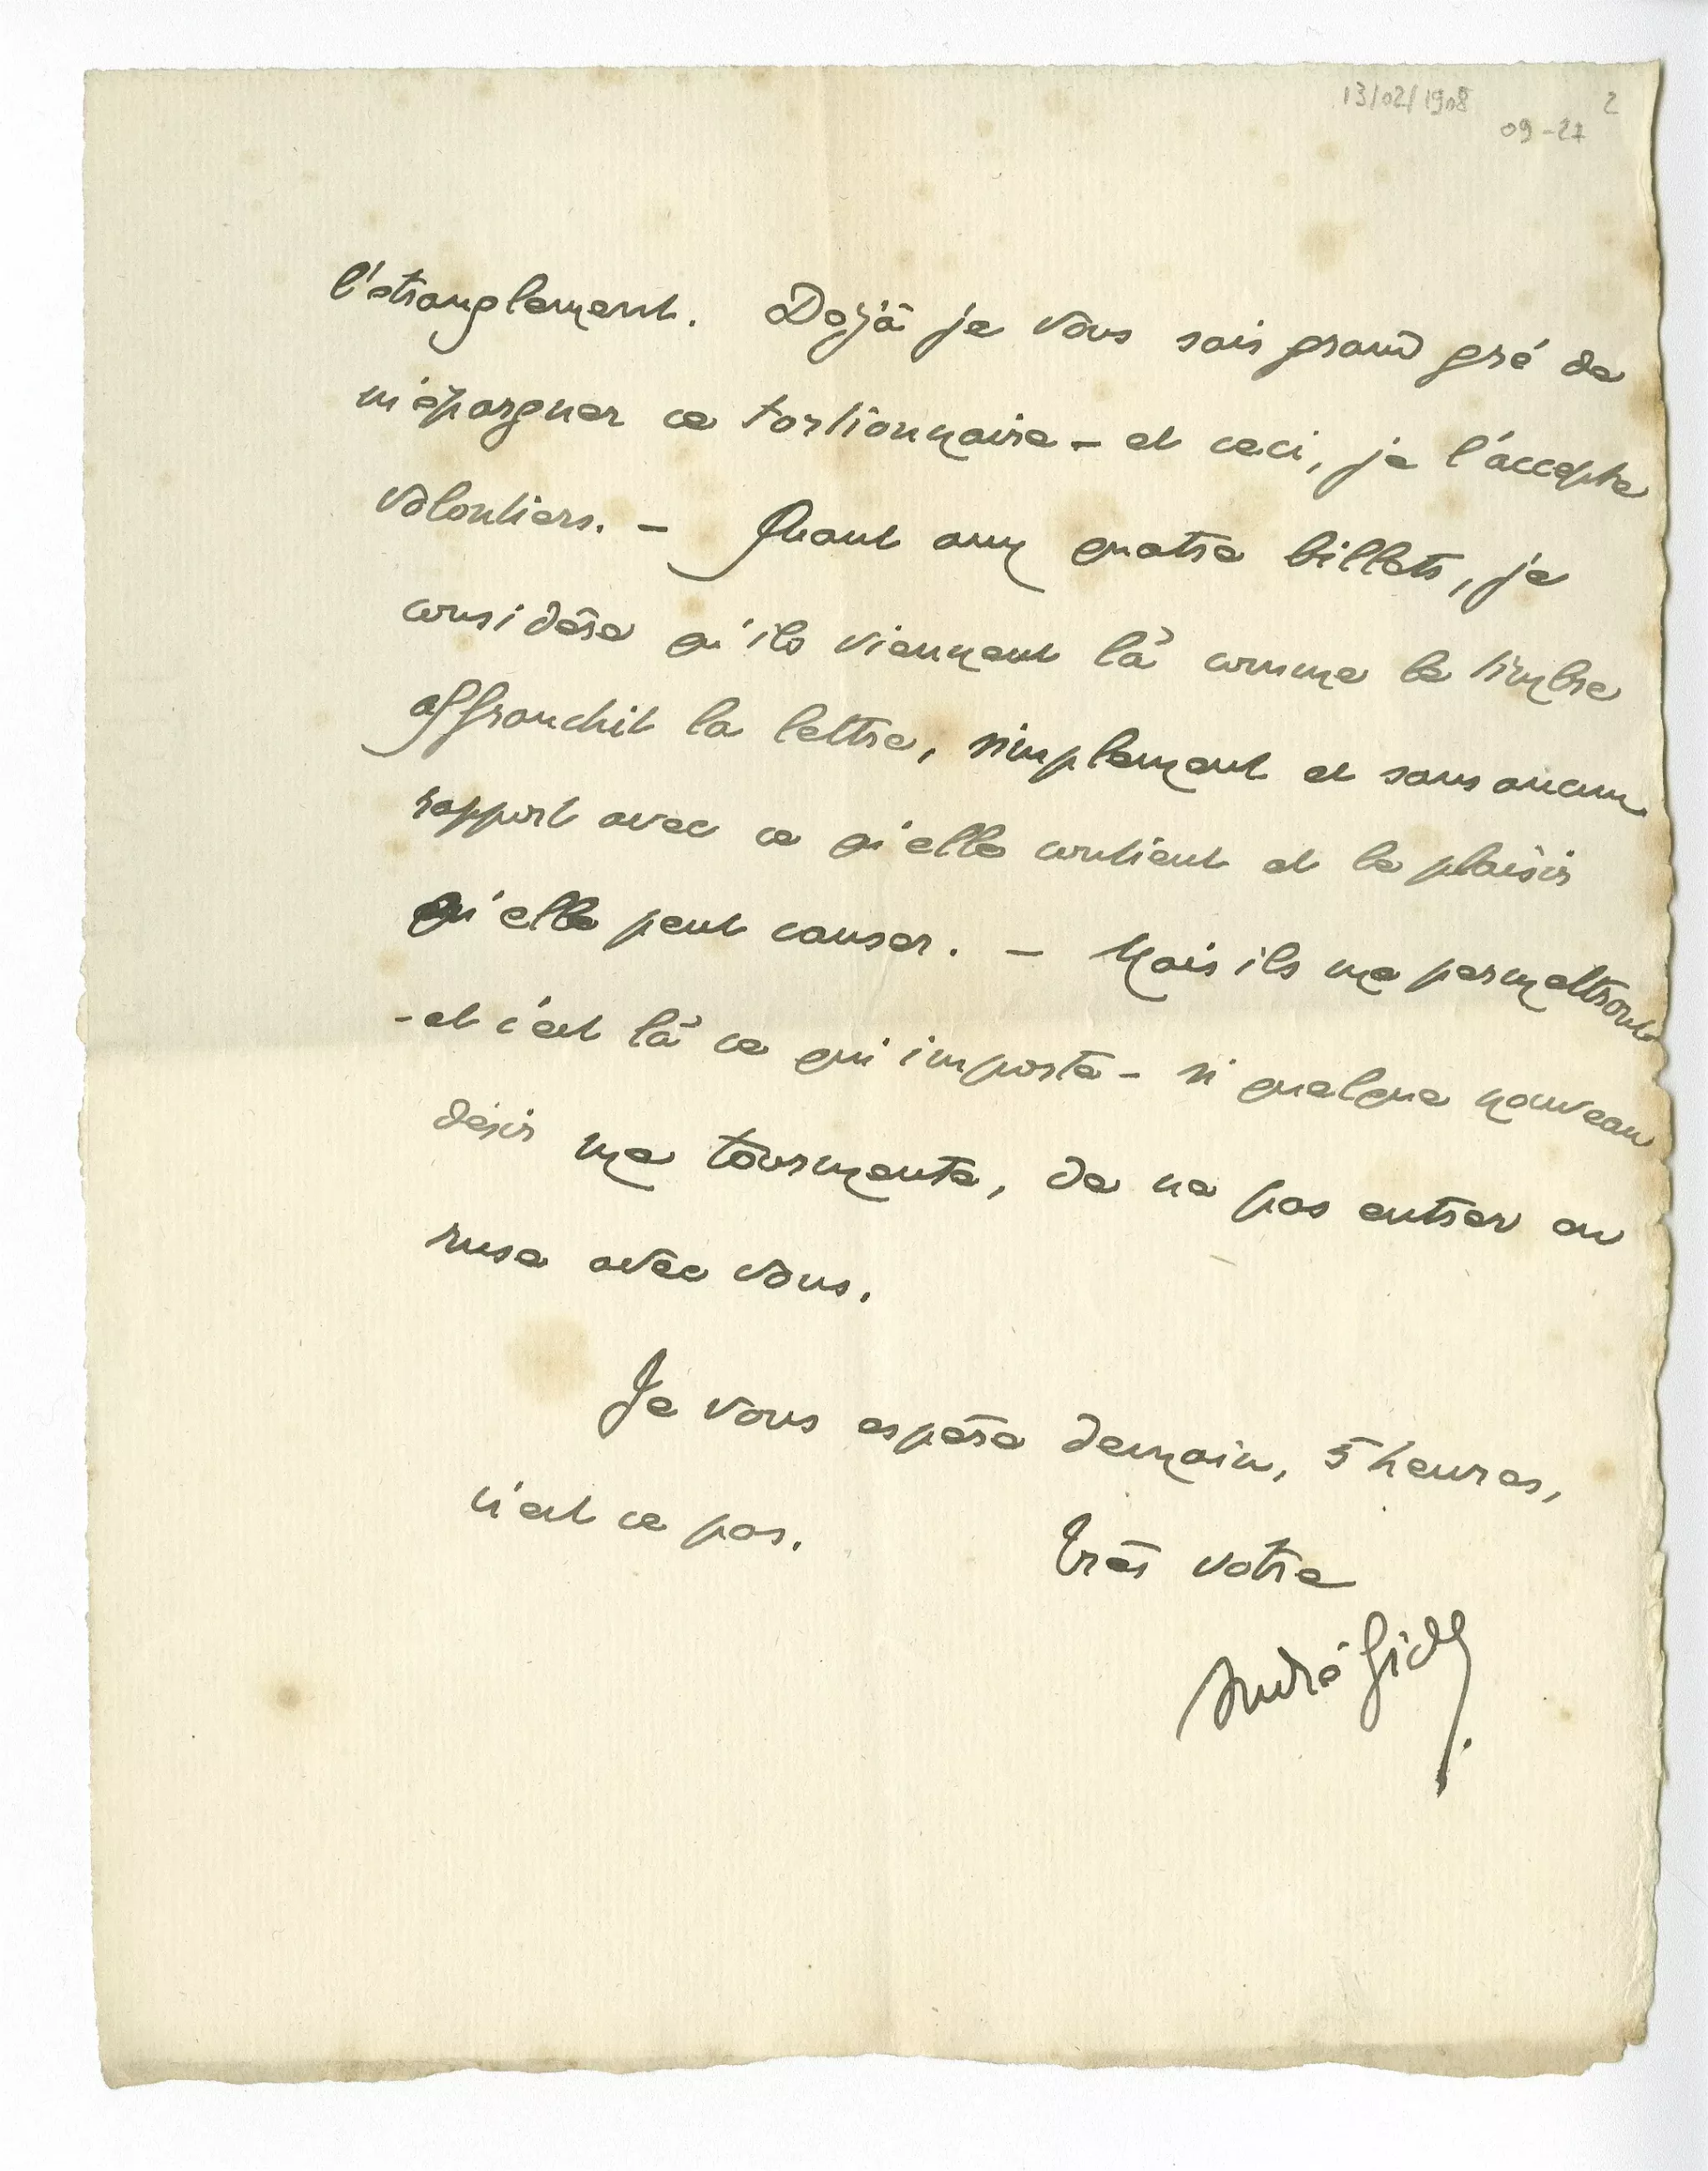 13/02/1908 2
09-27
l'étranglement. Dejà je vous sais grand gré de
m'épargner ce tortionnaire – et ceci, je l'accepte
volontiers. – Quant aux quatre billets, je
considère qu'ils viennent là comme le timbre
affranchit la lettre, simplement et sans aucun
rapport avec ce qu'elle contient et le plaisir
qu'elle peut causer. – Mais ils me permettront
- et c'est là ce qui importe - si quelque nouveau
désir me tourmente, de ne pas entrer en
ruse avec vous.
Je vous espère demain, 5 heures,
n'est ce pas.
Très votre
André Gide.